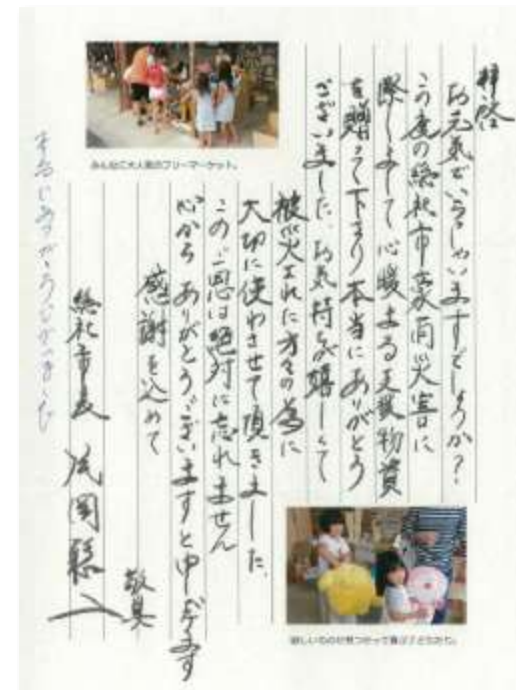 拝啓
お元気でいらっしゃいますでしょうか?
この度の総社市豪雨災害に
際しまして心暖まる支援物資
を贈って下さり本当にありがとう
ございました。お気持ちが嬉しくて
被災された方々の為に
大切に使わさせて頂きました。
このご恩は絶対に忘れません
心から ありがとうございますと申し上げます
感謝を込めて
敬具
総社市長 片岡聡一
みんなに大人気のフリーマーケット。
欲しいものが見つかって喜ぶ子どもたち。